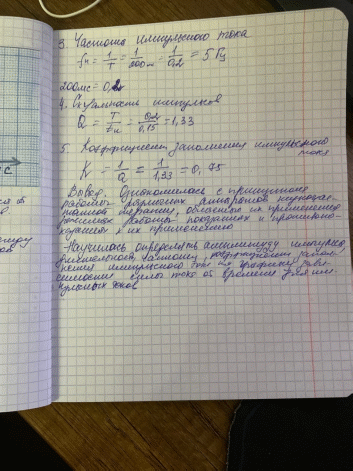 3. Частота импульсного тока
fи = 1/T = 1/200мс = 1/0,2 = 5 Гц
200мс = 0,2
4. Скважность импульсов
Q = T/tи = 0,2/0,15 = 1,33
5. Коэффициент заполнения импульсного
тока
K = 1/Q = 1/1,33 = 0,75
Вывод. Ознакомилась с принципом
работы аппаратов
терапии, областью их применения
показания и противопо-
казания к их применению
Научилась определять амплитуду импульса,
длительность, частоту, коэффициент запол-
нения импульсного тока по графику зави-
симости силы тока от времени для им-
пульсных токов